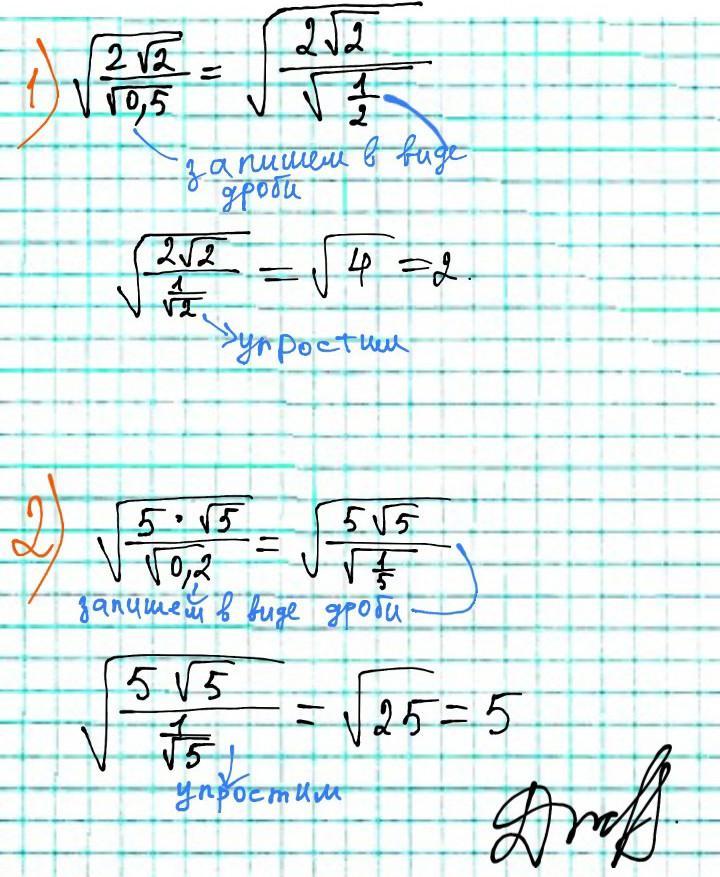 1) √(2√2/√0,5) = √(2√2/√(1/2))
запишем в виде
дроби
√(2√2/(1/√2)) = √4 = 2.
упростим
2) √(5·√5/√0,2) = √(5√5/√(1/5))
запишем в виде дроби
√(5√5/(1/√5)) = √25 = 5
упростим